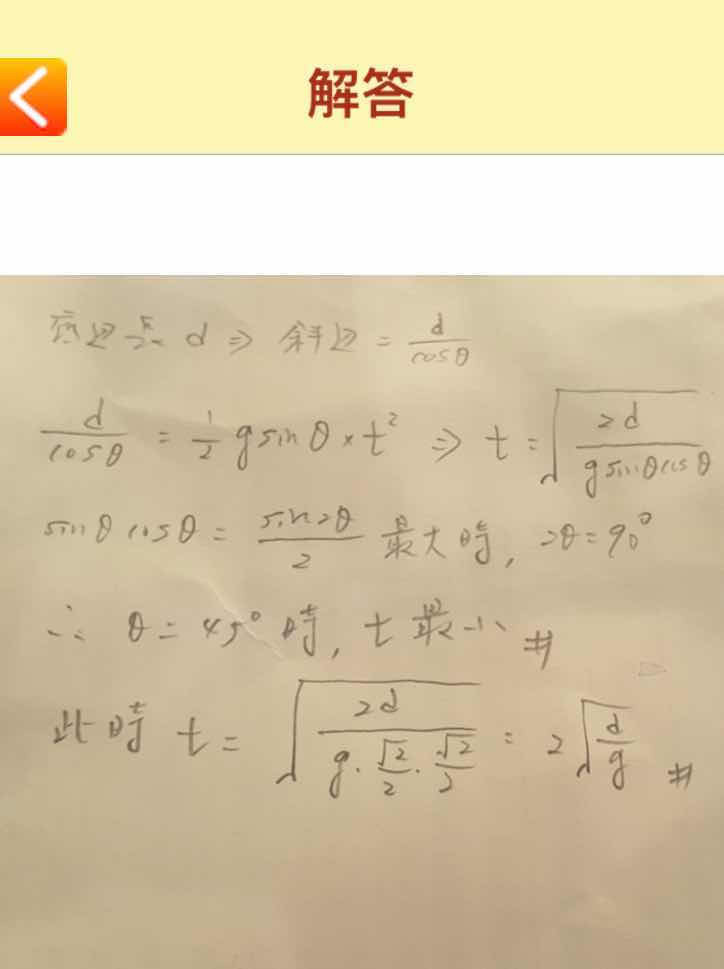 解答
底边長 d ⇒ 斜边 = d/cosθ
d/cosθ = 1/2 g sinθ × t² ⇒ t = √(2d/(g sinθ cosθ))
sinθ cosθ = sin2θ/2 最大時, 2θ = 90°
∴ θ = 45° 時, t 最小 #
此時 t = √(2d/(g · √2/2 · √2/2)) = 2√(d/g) #